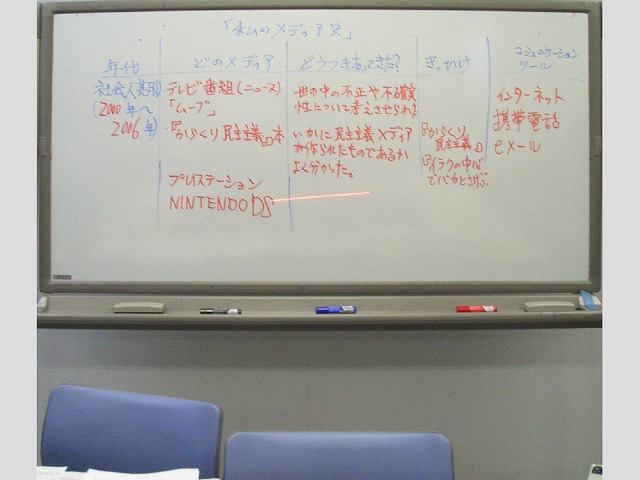 「私のメディア史」
年代
どのメディア
どうつきあってきた?
きっかけ
コミュニケーション
ツール
社会人其月
(2000年〜
2006年)
テレビ番組(ニュース)
「ムーブ」
・『からくり民主主義』本
プレイステーション
NINTENDO DS
世の中の不正や不確実
性について考えさせられた
いかに民主主義メディア
が作られたものであるか
よく分かった。
『からくり
民主主義』
『イラクの中心
でバカとさけぶ
インターネット
携帯電話
eメール